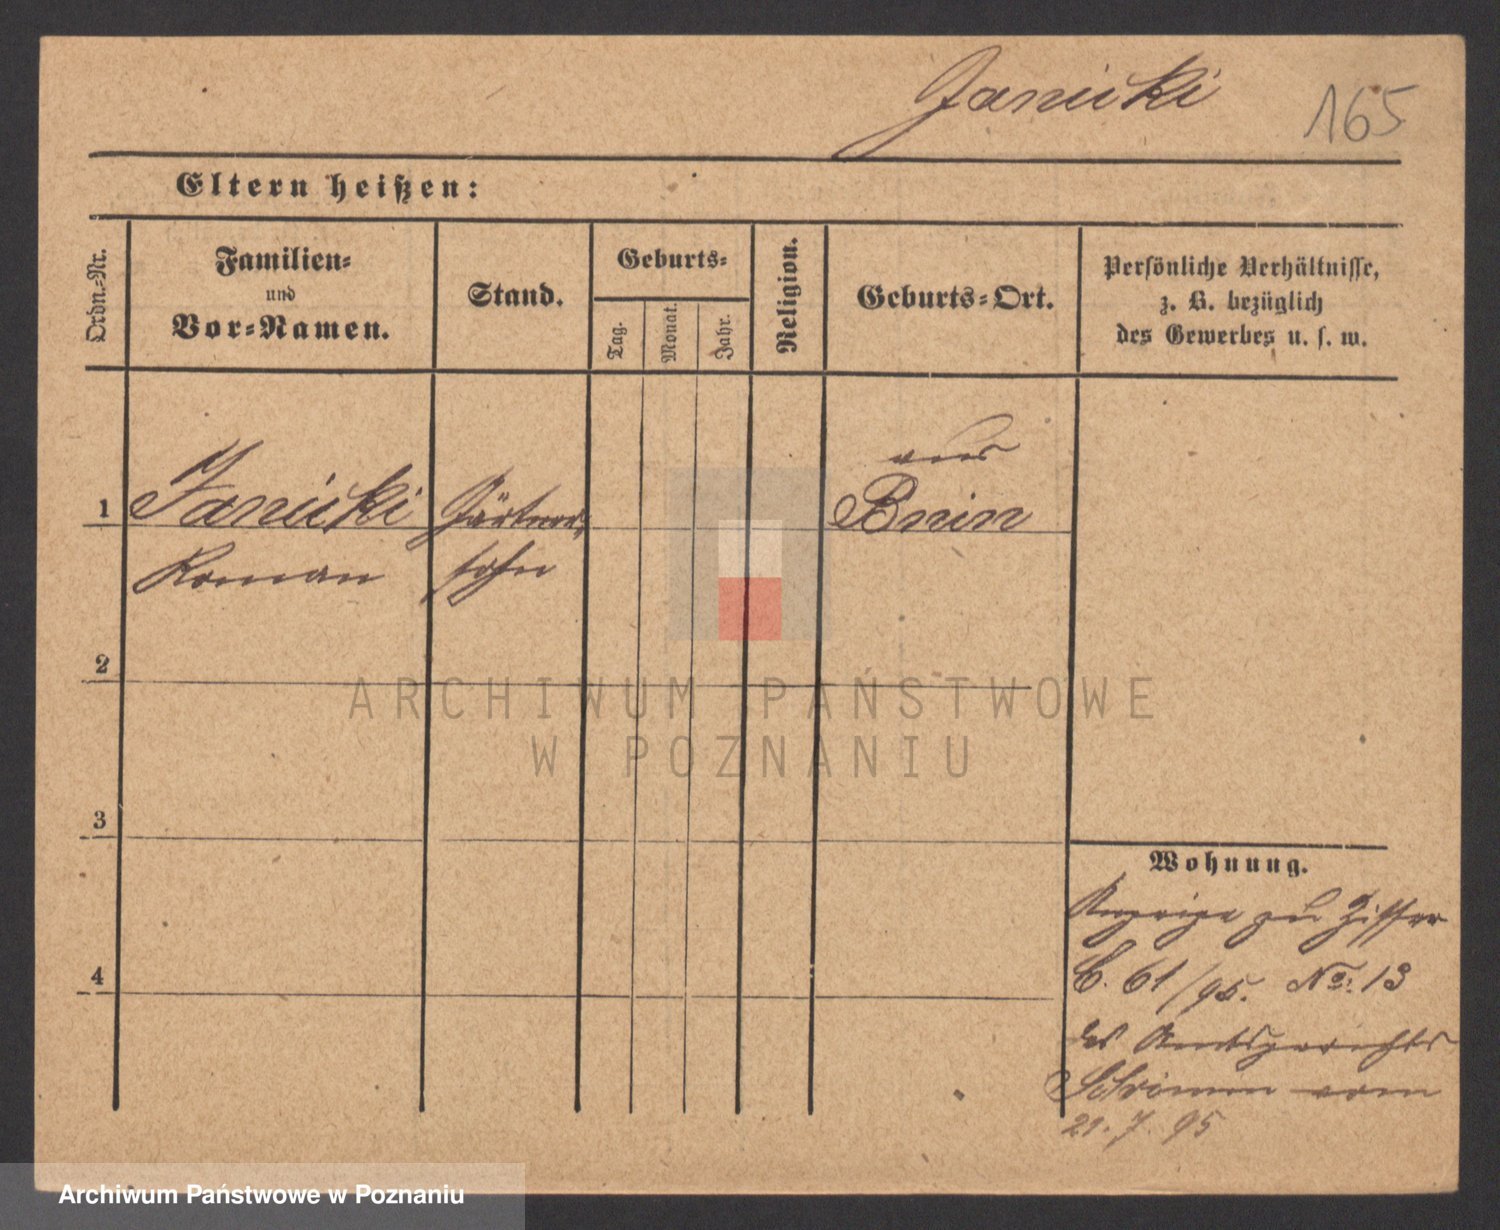 Janicki
165
Eltern heißen:
Ordn.-Nr.
Familien-
und
Vor-Namen.
Stand.
Geburts-
Tag.
Monat.
Jahr.
Religion.
Geburts-Ort.
Persönliche Verhältnisse,
z. B. bezüglich
des Gewerbes u. s. w.
1
Janicki
Roman
Gärtner,
sohn
aus
Bnin
2
3
4
Wohnung.
Anzeige zu Ziffer
C. 61/95. No: 13
des Amtsgerichts
Schrimm vom
21. 7. 95
ARCHIWUM PAŃSTWOWE
W POZNANIU
Archiwum Państwowe w Poznaniu